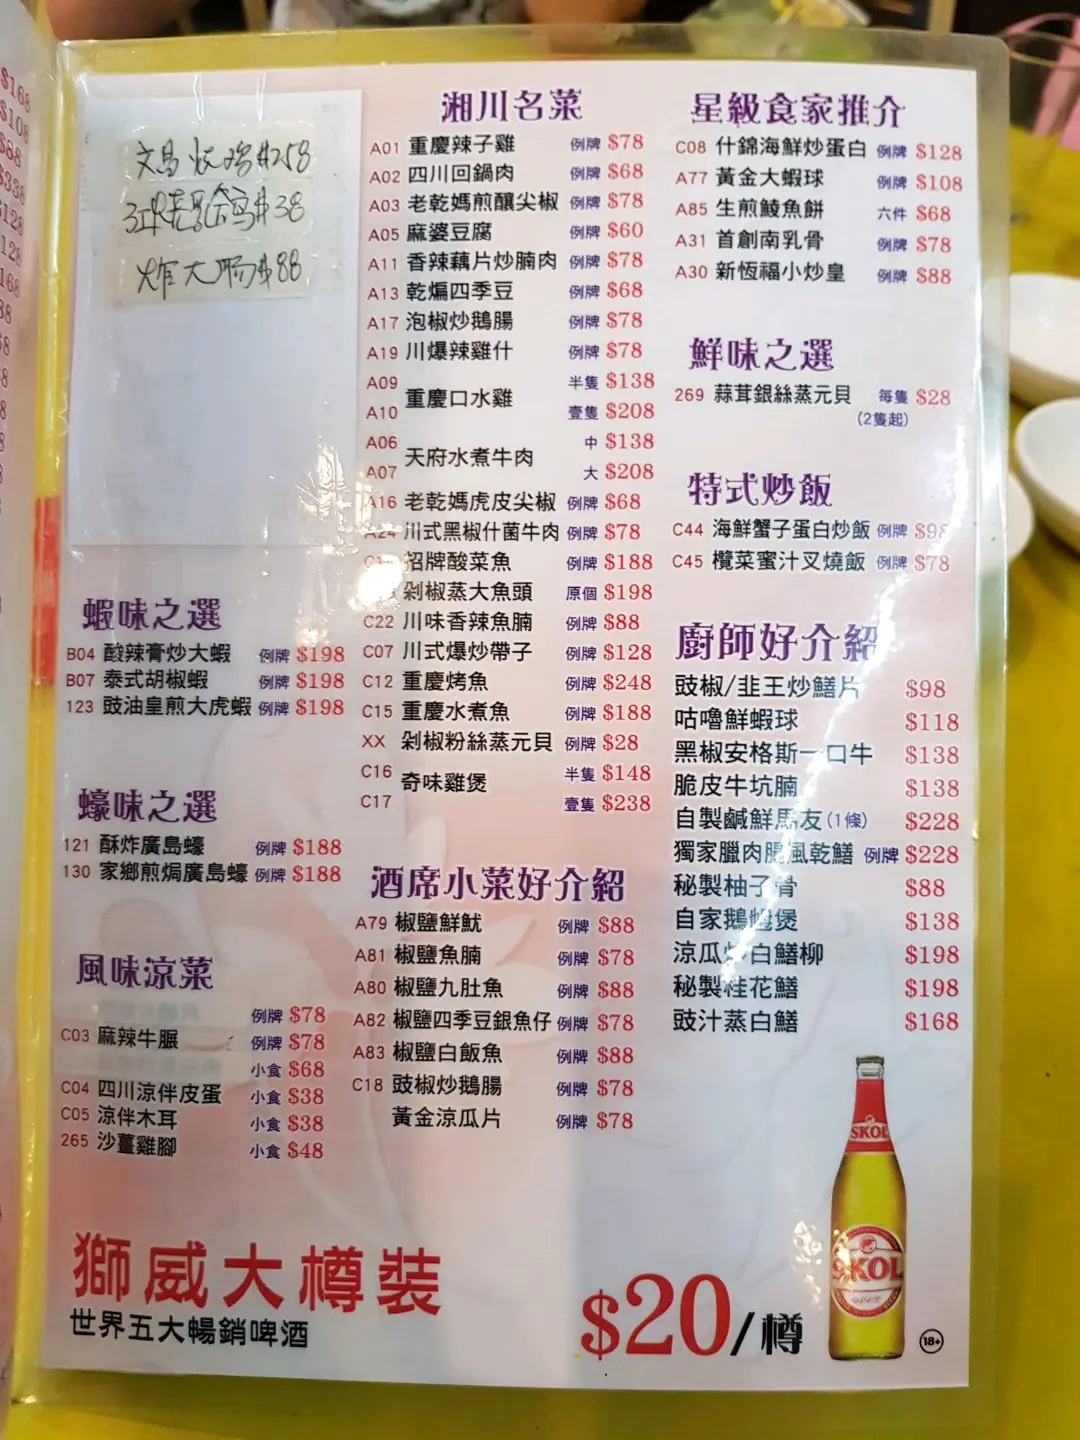 $168
$108
$88
$338
$128
$128
$168
炸大腸$88
蝦味之選
B04 酸辣膏炒大蝦 例牌 $198
B07 泰式胡椒蝦 例牌 $198
123 豉油皇煎大虎蝦 例牌 $198
蠔味之選
121 酥炸廣島蠔 例牌 $188
130 家鄉煎焗廣島蠔 例牌 $188
風味涼菜
例牌 $78
C03 麻辣牛𦟌 例牌 $78
小食 $68
C04 四川涼伴皮蛋 小食 $38
C05 涼伴木耳 小食 $38
265 沙薑雞腳 小食 $48
湘川名菜
A01 重慶辣子雞 例牌 $78
A02 四川回鍋肉 例牌 $68
A03 老乾媽煎釀尖椒 例牌 $78
A05 麻婆豆腐 例牌 $60
A11 香辣藕片炒腩肉 例牌 $78
A13 乾煸四季豆 例牌 $68
A17 泡椒炒鵝腸 例牌 $78
A19 川爆辣雞什 例牌 $78
A09 半隻 $138
重慶口水雞
A10 壹隻 $208
A06 中 $138
天府水煮牛肉
A07 大 $208
A16 老乾媽虎皮尖椒 例牌 $68
A24 川式黑椒什菌牛肉 例牌 $78
招牌酸菜魚 例牌 $188
剁椒蒸大魚頭 原個 $198
C22 川味香辣魚腩 例牌 $88
C07 川式爆炒帶子 例牌 $128
C12 重慶烤魚 例牌 $248
C15 重慶水煮魚 例牌 $188
XX 剁椒粉絲蒸元貝 例牌 $28
C16 半隻 $148
奇味雞煲
C17 壹隻 $238
酒席小菜好介紹
A79 椒鹽鮮魷 例牌 $88
A81 椒鹽魚腩 例牌 $78
A80 椒鹽九肚魚 例牌 $88
A82 椒鹽四季豆銀魚仔 例牌 $78
A83 椒鹽白飯魚 例牌 $88
C18 豉椒炒鵝腸 例牌 $78
黃金涼瓜片 例牌 $78
星級食家推介
C08 什錦海鮮炒蛋白 例牌 $128
A77 黃金大蝦球 例牌 $108
A85 生煎鯪魚餅 六件 $68
A31 首創南乳骨 例牌 $78
A30 新恆福小炒皇 例牌 $88
鮮味之選
269 蒜茸銀絲蒸元貝 每隻 $28
(2隻起)
特式炒飯
C44 海鮮蟹子蛋白炒飯 例牌 $98
C45 欖菜蜜汁叉燒飯 例牌 $78
廚師好介紹
豉椒/韭王炒鱔片 $98
咕嚕鮮蝦球 $118
黑椒安格斯一口牛 $138
脆皮牛坑腩 $138
自製鹹鮮馬友(1條) $228
獨家臘肉腸風乾鱔 例牌 $228
秘製柚子骨 $88
自家鵝乸煲 $138
涼瓜炒白鱔柳 $198
秘製桂花鱔 $198
豉汁蒸白鱔 $168
獅威大樽裝
世界五大暢銷啤酒
$20/樽
SKOL
SKOL
18+